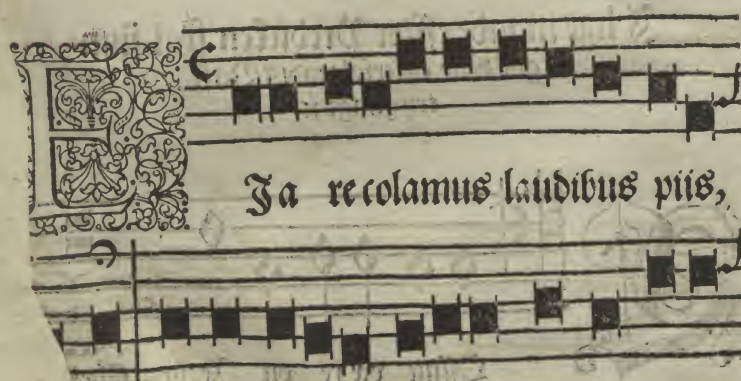 EJa recolamus laudibus piis,